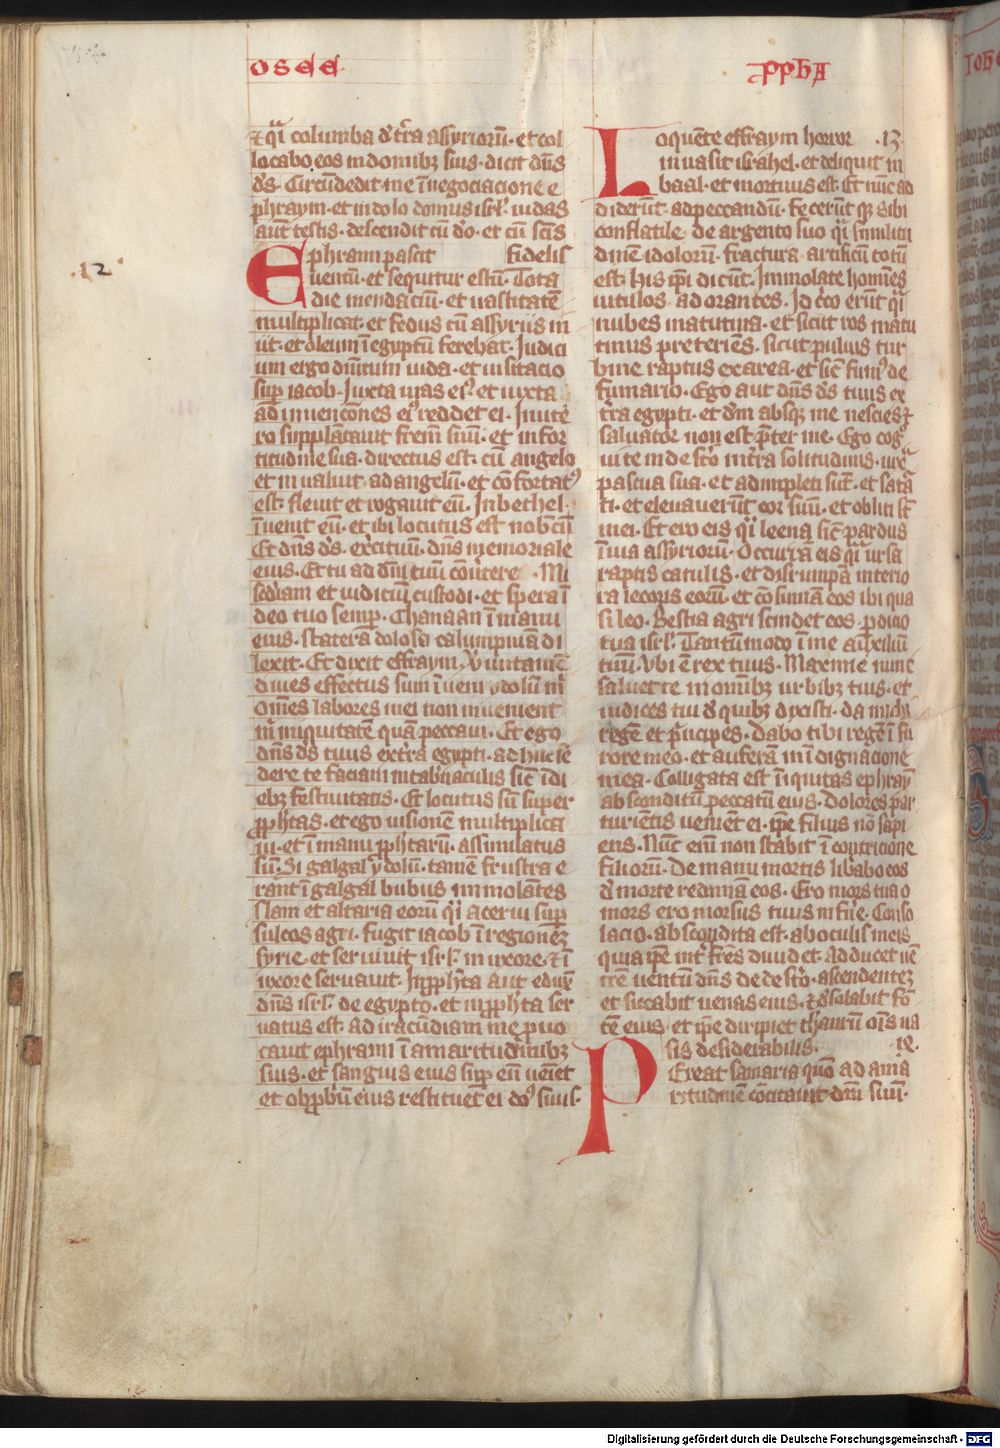 osee
pph̄a
⁊ qͣi columba d̓ tr̄a assyrioꝝ̄. et col
locabo eos in domibꝫ suis. dicit dn̄s
d̓s. Circūdedit me ī negociacione e
phraym. et in dolo domus isrl̓. iudas
aūt testis. descendit cū do. et cū scīs
Ephraim pascit fidelis
.12.
uentū. et sequitur estū. Tota
die mendaciū. et uastitatē
multiplicat. et fedus cū assyriis in
iit. et oleum ī egyptū ferebat. Judici
um ergo dn̄i cum iuda. et uisitacio
suꝑ iacob. Juxta uias eiꝰ. et iuxta
ad inuencōnes eiꝰ reddet ei. In ute
ro supplātauit frem̄ suū. et in for
titudine sua. directus est. cū angelo
et inualuit. ad angelū. et cōfortatꝰ
est. fleuit et rogauit eū. In bethel.
īuenit eū. et ibi locutus est nob̄cū
Et dn̄s d̓s. ex̓cituū. dn̄s memoriale
eius. Et tu ad dm̄ tuū cōuertere. Mi
sc̄diam et iudiciū custodi. et spera ī
deo tuo semꝑ. Chanaan ī manu
eius. statera dolosa calumpniā di
lexit. Et dixit effraym. Ver̄utamē
diues effectus sum īueni ydolū m̄
Om̄es labores mei non inuenient
m̄ iniquitatē quā peccaui. Et ego
dn̄s d̓s tuus ex tr̄a egypti. adhuc se
dere te faciam in tab̓naculis sic̄ ī di
ebꝫ festiuitatis. Et locutus sū super
ꝓph̄tas. et ego uisionē multiplica
ui. et ī manu ꝓph̄taꝝ̄. assimilatus
sū. Si galgal ydolū. tamē frustra e
rant ī galgal bubus immolātes
Nam et altaria eorū qͣi acerui suꝑ
sulcos agri. fugit iacob ī regionēꝫ
syrie. et seruiuit isrl̓. in uxore. ⁊ ī
uxore seruauit. In ꝓph̄ta aūt eduxͭ
dn̄s isrl̓. de egypto. et in ꝓph̄ta ser
uatus est. ad iracūdiam me ꝓuo
cauit ephraim ī amaritudinibꝫ
suis. et sanguis eius suꝑ eū ueniet
et obꝓbriū eius restituet ei dn̄s suus.
Loquēte effraym horror .13.
inuasit israhel. et deliquit in
baal. et mortuus est. Et nūc ad
diderūt. ad peccandū. fecerūt qꝫ sibi
conflatile de argento suo qͣi similitu
dinem idolorum. factura artificū totū
est. his ip̄i dicūt. Immolate homīes
uitulos adorantes. Id c̓co erūt qͣi
nubes matutina. et sicut ros matu
tinus preteriēs. sicut puluis tur
bine raptus ex area. et sic̄ fumꝰ de
fumario. Ego aūt dn̄s d̓s tuus ex
tr̄a egypti. et dm̄ absqꝫ me nescies. ⁊
saluator non est p̄ter me. Ego cog
ui te in deserto in tr̄a solitudinis. iuxͣ
pascua sua. et adimpleti sūt. et satā
ti. et eleuauerūt cor suū. et obliti st̄
mei. Et ero eis qͣi leena sic̄ pardus
ī uia assyriorū. Occurrā eis qͣi ursa
raptis catulis. et disrumpā interio
ra iecoris eorū. et cō sumā eos ibi qua
si leo. Bestia agri scindet eos. ꝑdicio
tua isrl̓. Tantūmodo ī me auxiliū
tuū. Ubi ē rex tuus. Maxime nunc
saluet te in om̄ibꝫ urbibꝫ tuis. et
iudices tui d̓ quibꝫ dyxisti. da michi
regē et p̄ncipes. Dabo tibi regē ī fu
rore meo. et auferā in īdignacione
mea. Colligata est īiquitas ephraȳ
absconditū peccatū eius. Dolores par
turiētis ueniēt ei. ip̄e filius nō sapi
ens. Nūc eim̄ non stabit ī contricione
filiorū. De manu mortis libabo eos
d̓ morte redimā eos. Ero mors tua o
mors ero morsus tuus inf̓ne. Conso
lacio. abscondita est. ab oculis meis
quia ip̄e int̓ fr̄es diuidet. Adducet uē
tum uentū dn̄s de deserto. ascendenteꝫ
et siccabit uenas eius. ⁊ d̓solabit fō
tē eius. et ip̄e diripiet thaurū oīs ua
sis desiderabilis.
Pereat samaria quō ad ama
ritudinē cōcitauit dm̄ suū.